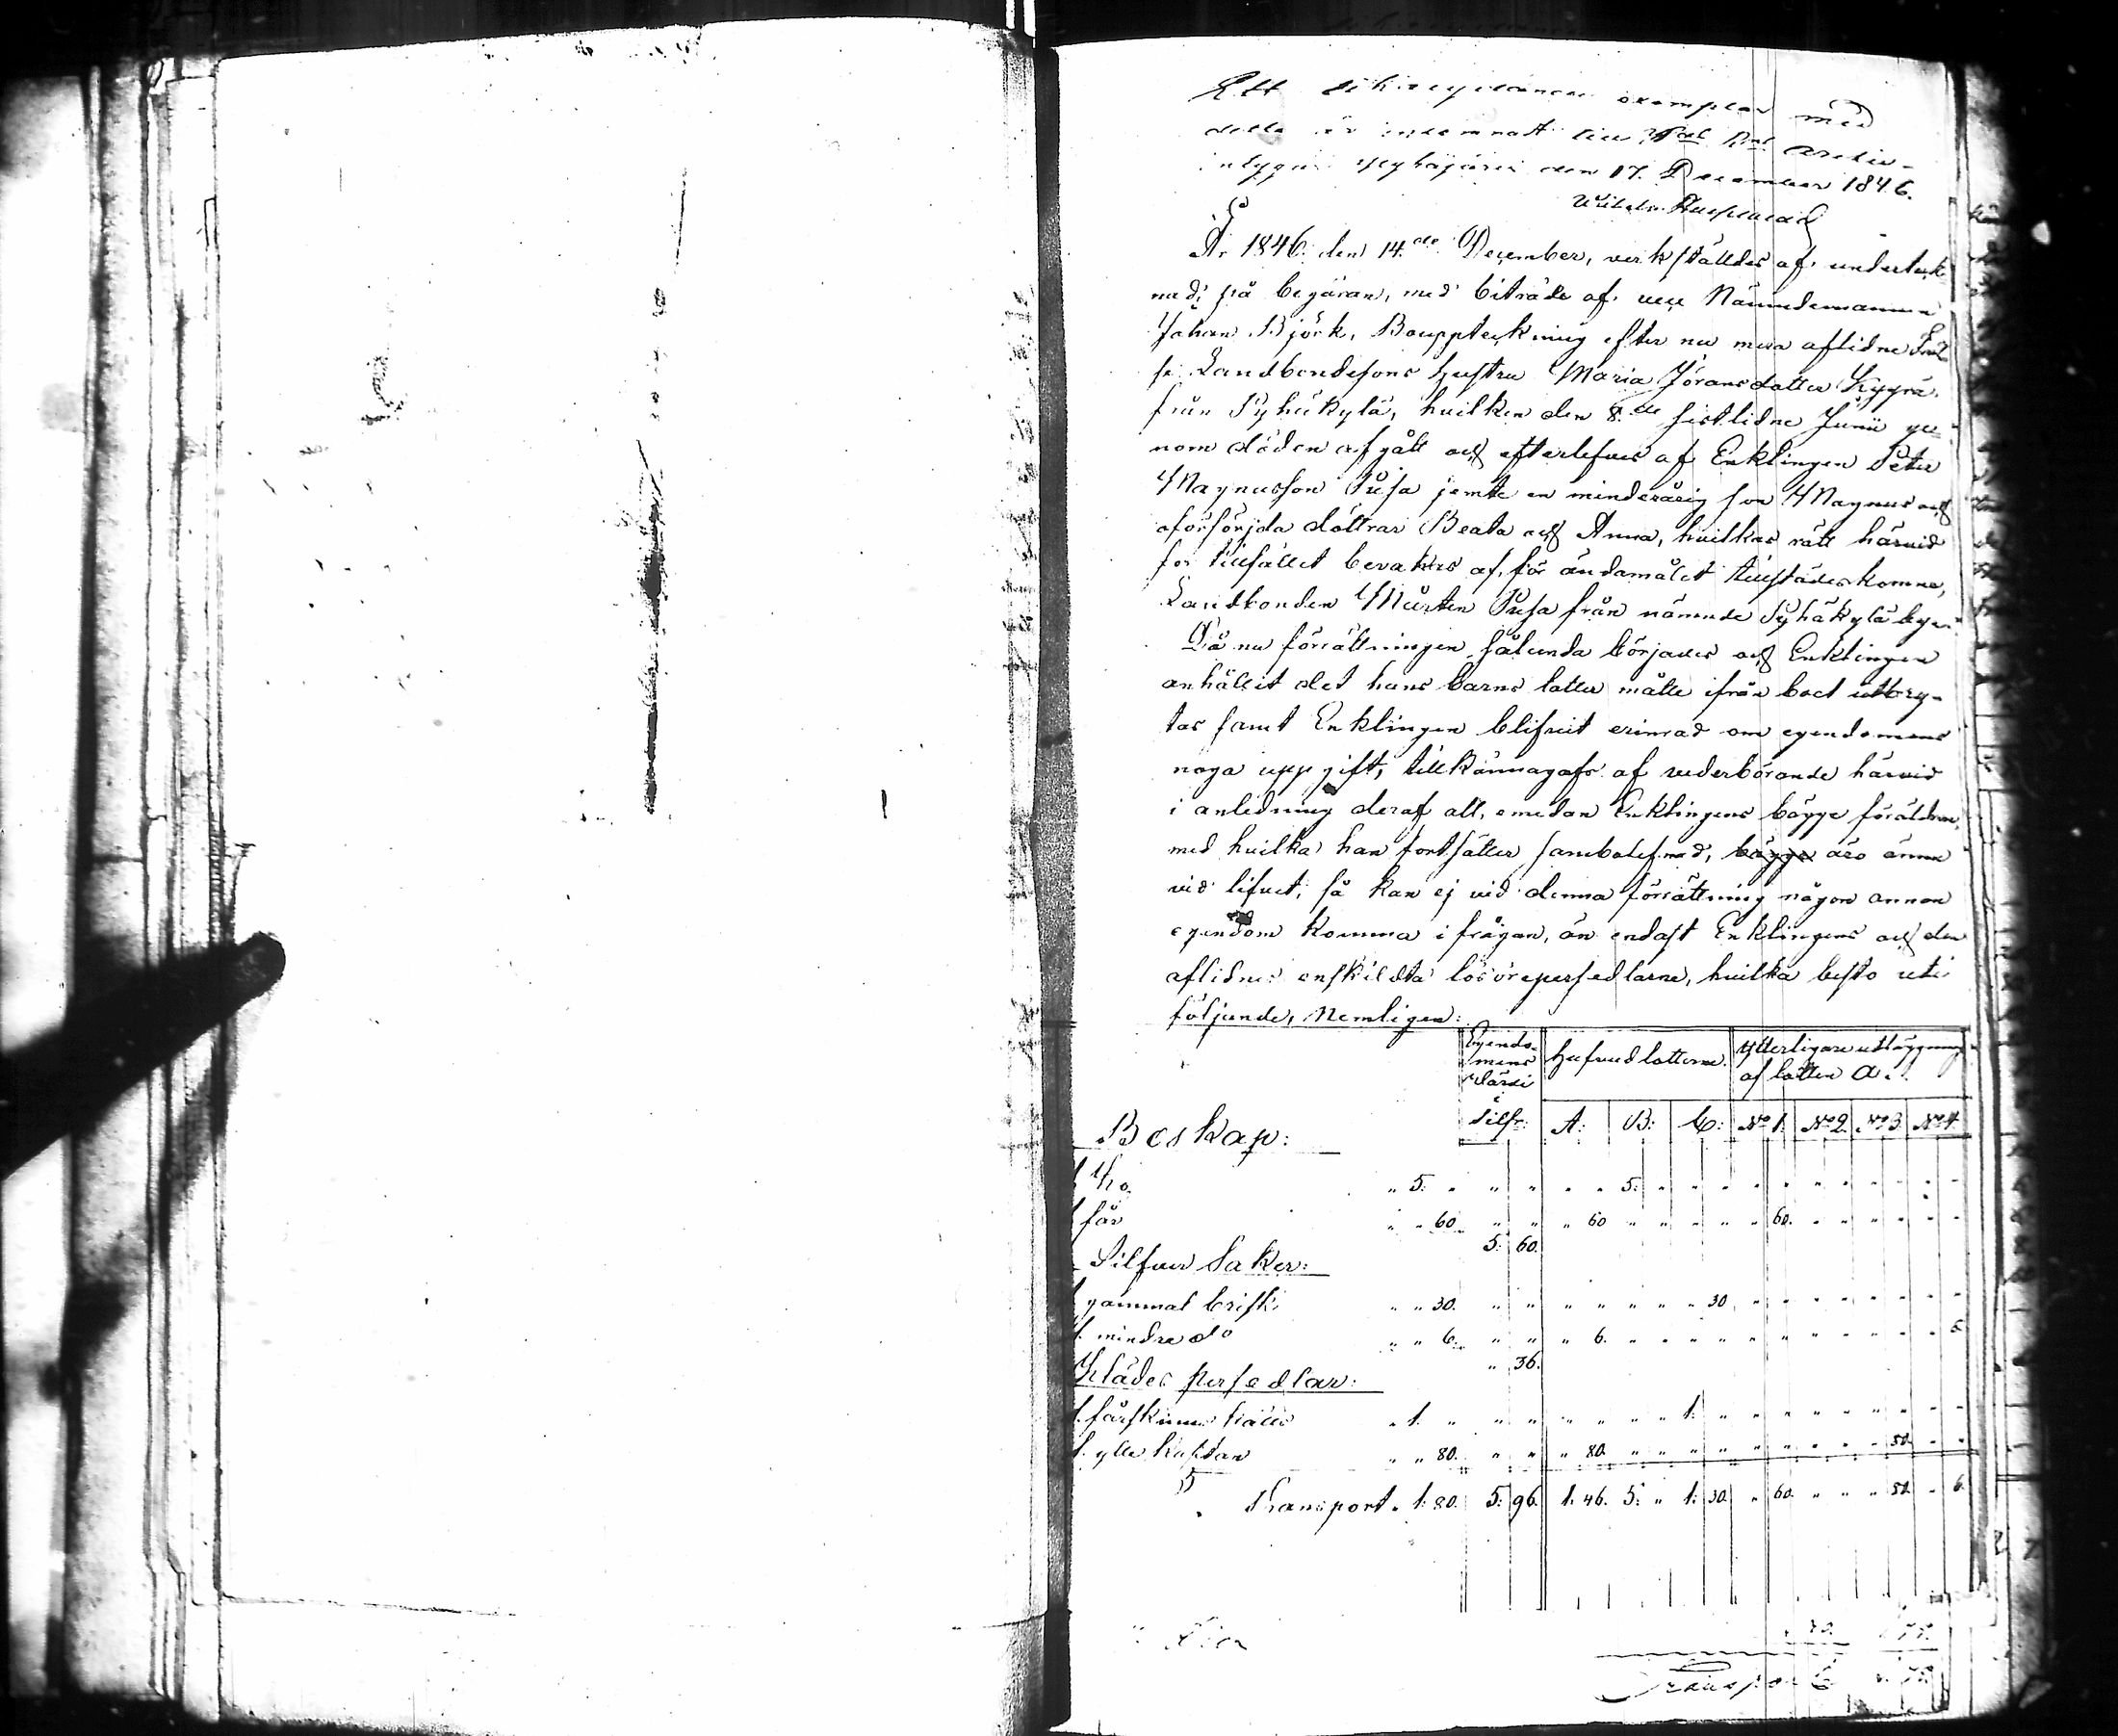 Ett exemplar med
detta är inlemnadt till arkiv
intygar Pyhäjärvi den 17. December 1846.
År 1846 den 14.de December, verkställdes af underteck-
nad, på begäran, med biträde af Nämndemannen
Johan Björk, Bouppteckning efter nu mera aflidne
Landbondesons hustru Maria Jöransdotter
från Pyhäkylä, hvilken den 8.de sistlidne Junii ge-
nom döden afgått och efterlefves af Enklingen Peter
Magnusson Pusa jemte en minderårig son Magnus och
oförsörjda döttrar Beata och Anna, hvilkas rätt härvid
för tillfället bevakas af, för ändamålet tillstädeskomne,
Landbonden Mårten Pusa från nämnde Pyhäkylä by.
Då nu förrättningen sålunda börjades och Enklingen
anhållit det hans barns lotter måtte ifrån boet utbry-
tas samt Enklingen blifvit erinrad om egendomens
noga uppgift, tillkännagafs af vederbörande härvid
i anledning deraf att, emedan Enklingens bägge föräldrar,
med hvilka han fortsätter sambolefnad, bägge äro ännu
vid lifvet, så kan ej vid denna förrättning någon annan
egendom komma i frågan, än endast Enklingens och den
aflidnes enskildta lösörepersedlarne, hvilka bestå uti
följande, Nemligen:
Egendo-
mens
värde i
Silfr: Hufvudlotterne. Ytterligare utläggning
af lotten A.
A: B: C: No 1. No 2. No 3. No 4.
Boskap:
1 Ko " 5. " " " " " 5: " " " " " " " " " " "
1 får " " 60. " " " 60 " " " " " 60. " " " " " "
5: 60.
Silfver Saker:
1 gammal brisk " " 30. " " " " " " " 30 " " " " " " " "
1. mindre do " " 6. " " " 6. " " " " " " " " " " " 6
" 36.
Klädes persedlar:
1. fårskinns " 1. " " " " " " " 1: " " " " " " " " "
1. ylle kaftan " " 80. " " " 80. " " " " " " " " " 50. " "
Transport " 1: 80. 5: 96. 1: 46. 5: " 1: 30. " 60. " " " 50. " 6.
Transport